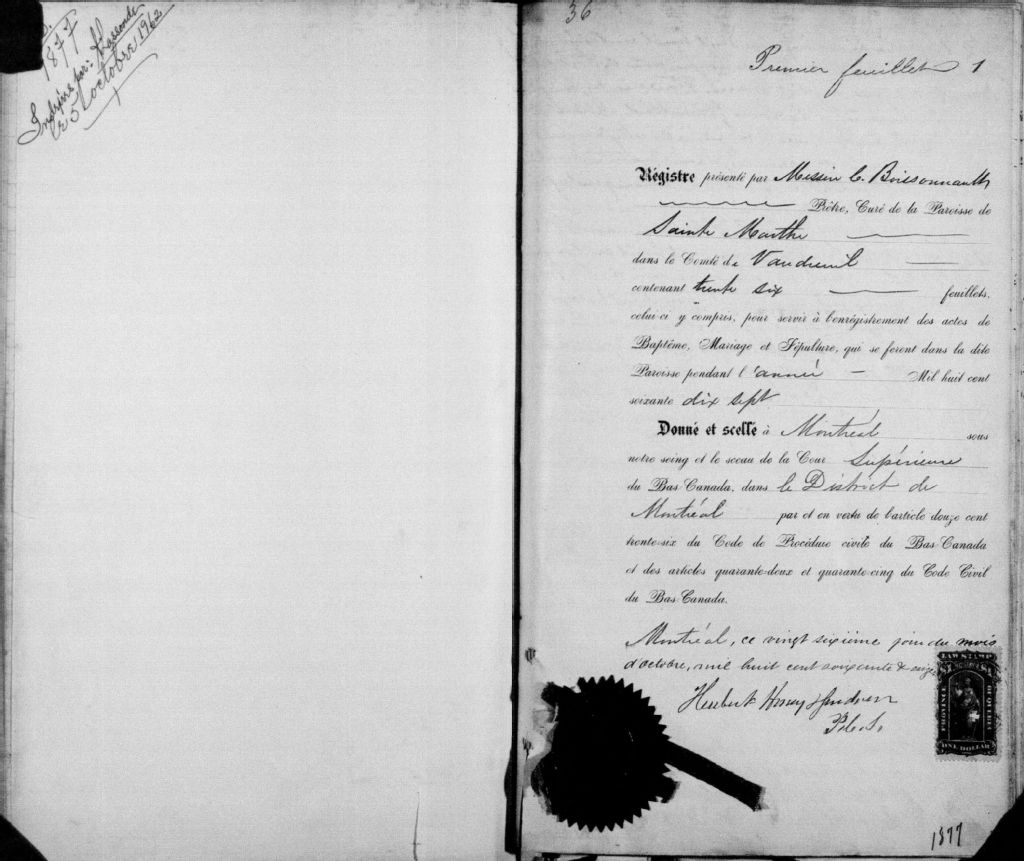 1877
le 5 octobre 1962
36
Premier feuillet 1
Régistre présenté par Messire C. Boissonnault
Prêtre, Curé de la Paroisse de
Sainte Marthe
dans le Comté de Vaudreuil
contenant trente six feuillets,
celui-ci y compris, pour servir à l'enrégistrement des actes de
Baptême, Mariage et Sépulture, qui se feront dans la dite
Paroisse pendant l'année Mil huit cent
soixante dix sept
Donné et scellé à Montréal sous
notre seing et le sceau de la Cour Supérieure
du Bas-Canada, dans le District de
Montréal par et en vertu de l'article douze cent
trente-six du Code de Procédure civile du Bas-Canada
et des articles quarante-deux et quarante-cinq du Code Civil
du Bas-Canada.
Montréal, ce vingt sixième jour du mois
d'octobre, mil huit cent soixante & seize
LAW STAMP
PROVINCE
OF QUEBEC
ONE DOLLAR
1877